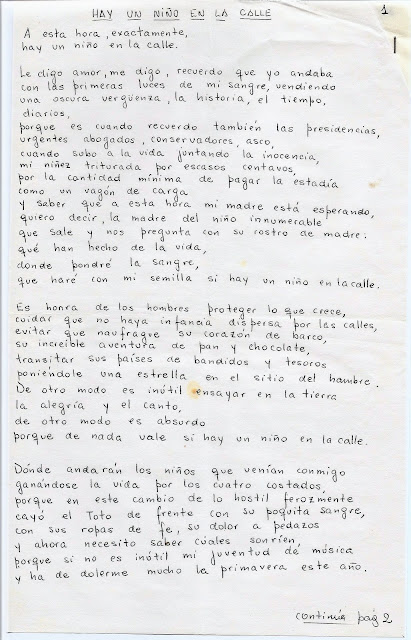 HAY UN NIÑO EN LA CALLE
1
A esta hora, exactamente,
hay un niño en la calle.
Le digo amor, me digo, recuerdo que yo andaba
con las primeras luces de mi sangre, vendiendo
una oscura vergüenza, la historia, el tiempo,
diarios,
porque es cuando recuerdo también las presidencias,
urgentes abogados, conservadores, asco,
cuando subo a la vida juntando la inocencia,
mi niñez triturada por escasos centavos,
por la cantidad mínima de pagar la estadía
como un vagón de carga
y saber que a esta hora mi madre está esperando,
quiero decir, la madre del niño innumerable
que sale y nos pregunta con su rostro de madre:
qué han hecho de la vida,
dónde pondré la sangre,
que haré con mi semilla si hay un niño en la calle.
Es honra de los hombres proteger lo que crece,
cuidar que no haya infancia dispersa por las calles,
evitar que naufrague su corazón de barco,
su increíble aventura de pan y chocolate,
transitar sus países de bandidos y tesoros
poniéndole una estrella en el sitio del hambre.
De otro modo es inútil ensayar en la tierra
la alegría y el canto,
de otro modo es absurdo
porque de nada vale si hay un niño en la calle.
Dónde andarán los niños que venían conmigo
ganándose la vida por los cuatro costados,
porque en este cambio de lo hostil ferozmente
cayó el Toto de frente con su poquita sangre,
con sus ropas de fe, su dolor a pedazos
y ahora necesito saber cuáles sonríen,
porque si no es inútil mi juventud de música
y ha de dolerme mucho la primavera este año.
continúa pág 2